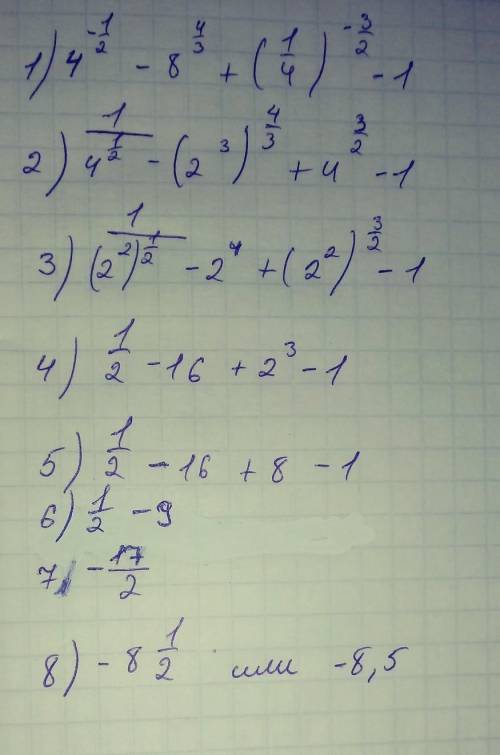 1) 4^(-1/2) - 8^(4/3) + (1/4)^(-3/2) - 1
2) 1/4^(1/2) - (2^3)^(4/3) + 4^(3/2) - 1
3) 1/(2^2)^(1/2) - 2^4 + (2^2)^(3/2) - 1
4) 1/2 - 16 + 2^3 - 1
5) 1/2 - 16 + 8 - 1
6) 1/2 - 9
7) - 17/2
8) - 8 1/2 или -8,5